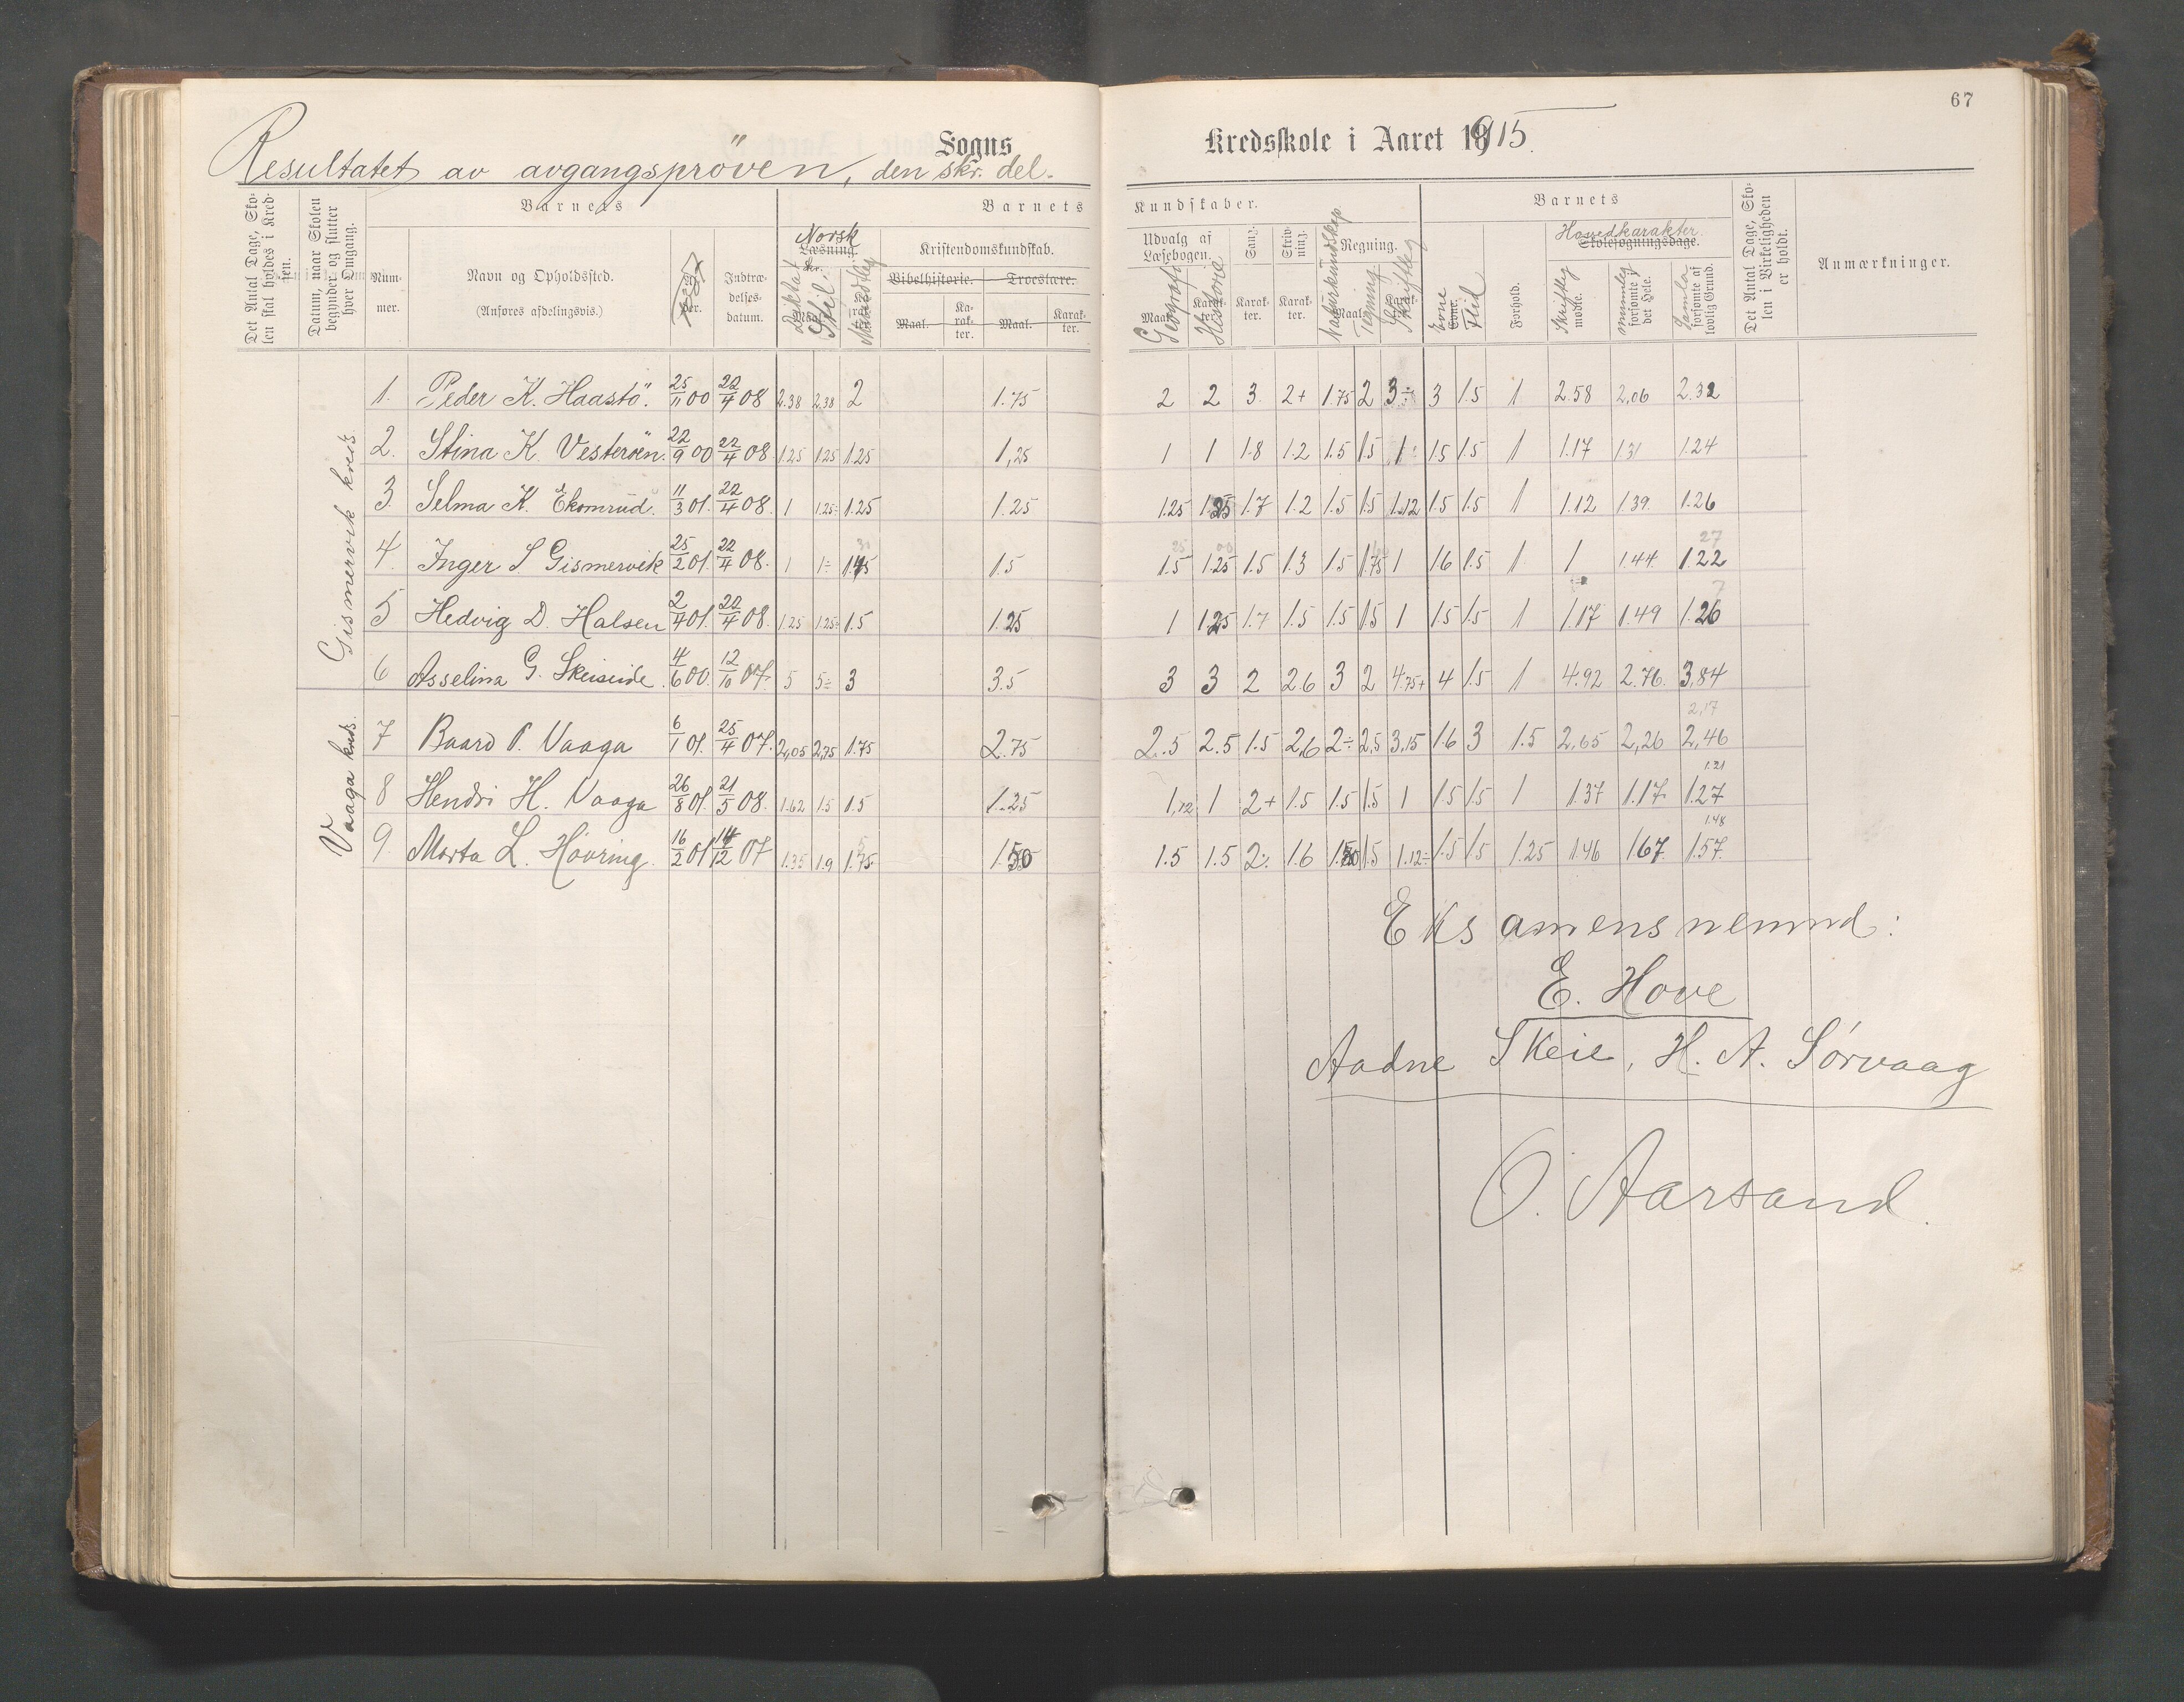 67
Sogns
Kredsskole i Aaret 1915.
Resultatet av avgangsprøven, den skr. del.
Det Antal Dage, Skolen skal holdes i Kredsen.
Datum, naar Skolen begynder og slutter hver Omgang.
Barnets
Barnets
Kundskaber.
Barnets
Det Antal Dage, Skolen i Virkeligheden er holdt.
Anmærkninger.
Nummer.
Navn og Opholdssted.
(Anføres afdelingsvis.)
Indtrædelsesdatum.
Norsk
Læsning.
Diktat
Stil
Mundtleg
Kristendomskundskab.
Bibelhistorie.
Troeslære.
Maal.
Karakter.
Maal.
Karakter.
Udvalg af Læsebogen.
Geografi
Historie
Sang.
Skrivning.
Regning.
Naturkundskap
Tegning
Skriftleg
Evne
Flid
Forhold.
Hovedkarakter
Skolesøgningsdage.
Skriftleg
mødte.
mundleg
forsømte i det Hele.
Samla
forsømte af lovlig Grund.
Gismervik kreds.
1. Peder K. Haastø. 25/11 00 22/4 08 2.38 2.38 2 1.75 2 2 3 2+ 1.75 2 3÷ 3 1.5 1 2.58 2,06 2.32
2. Stina K. Vesterøen. 22/9 00 22/4 08 1.25 1.25 1.25 1,25 1 1 1.8 1.2 1.5 1.5 1÷ 1.5 1.5 1 1.17 1.31 1.24
3. Selma K. Ekornrud. 11/3 01. 22/4 08. 1 1.25÷ 1.25 1.25 1.25 1.25 1.7 1.2 1.5 1.5 1.12 1.5 1.5 1 1.12 1.39. 1.26
4. Inger S. Gismervik 25/2 01. 22/4 08. 1 1÷ 1.5 1.5 1.25 1.5 1.3 1.5 1.75 1 1.6 1.5 1 1 1.44. 1.22
5 Hedvig D. Halsen 2/4 01. 22/4 08. 1.25 1.25÷ 1.5 1.25 1 1.25 1.7 1.5 1.5 1.5 1 1.5 1.5 1 1.17 1.49 1.26
6 Asselina G. Skeiseide. 4/6 00. 12/10 07. 5 5÷ 3 3.5 3 3 2 2.6 3 2 4.75+ 4 1.5 1 4.92 2.76. 3,84
Vaaga kreds.
2,17
7 Baard P. Vaaga 6/1 01. 25/4 07. 2,05 2,75 1.75 2.75 2.5 2.5 1.5 2,6 2÷ 2,5 3,15 1.6 3 1.5 2,65 2,26 2,46
1.21
8 Hendri H. Vaaga 26/8 01. 21/5 08. 1.62 1.5 1.5 1.25 1,12 1 2+ 1.5 1.5 1.5 1 1.5 1.5 1 1.37 1.17 1.27
1.48
9. Marta L. Høvring. 16/2 01 14/12 07 1.35 1.9 1.75 1.50 1.5 1.5 2÷ 1.6 1.50 1.5 1.12÷ 1.5 1.5 1.25 1.46 1.67 1.57
Eksamensnemnd:
E. Hove
Aadne Skeie, H. A. Sørvaag
O. Aarsand.